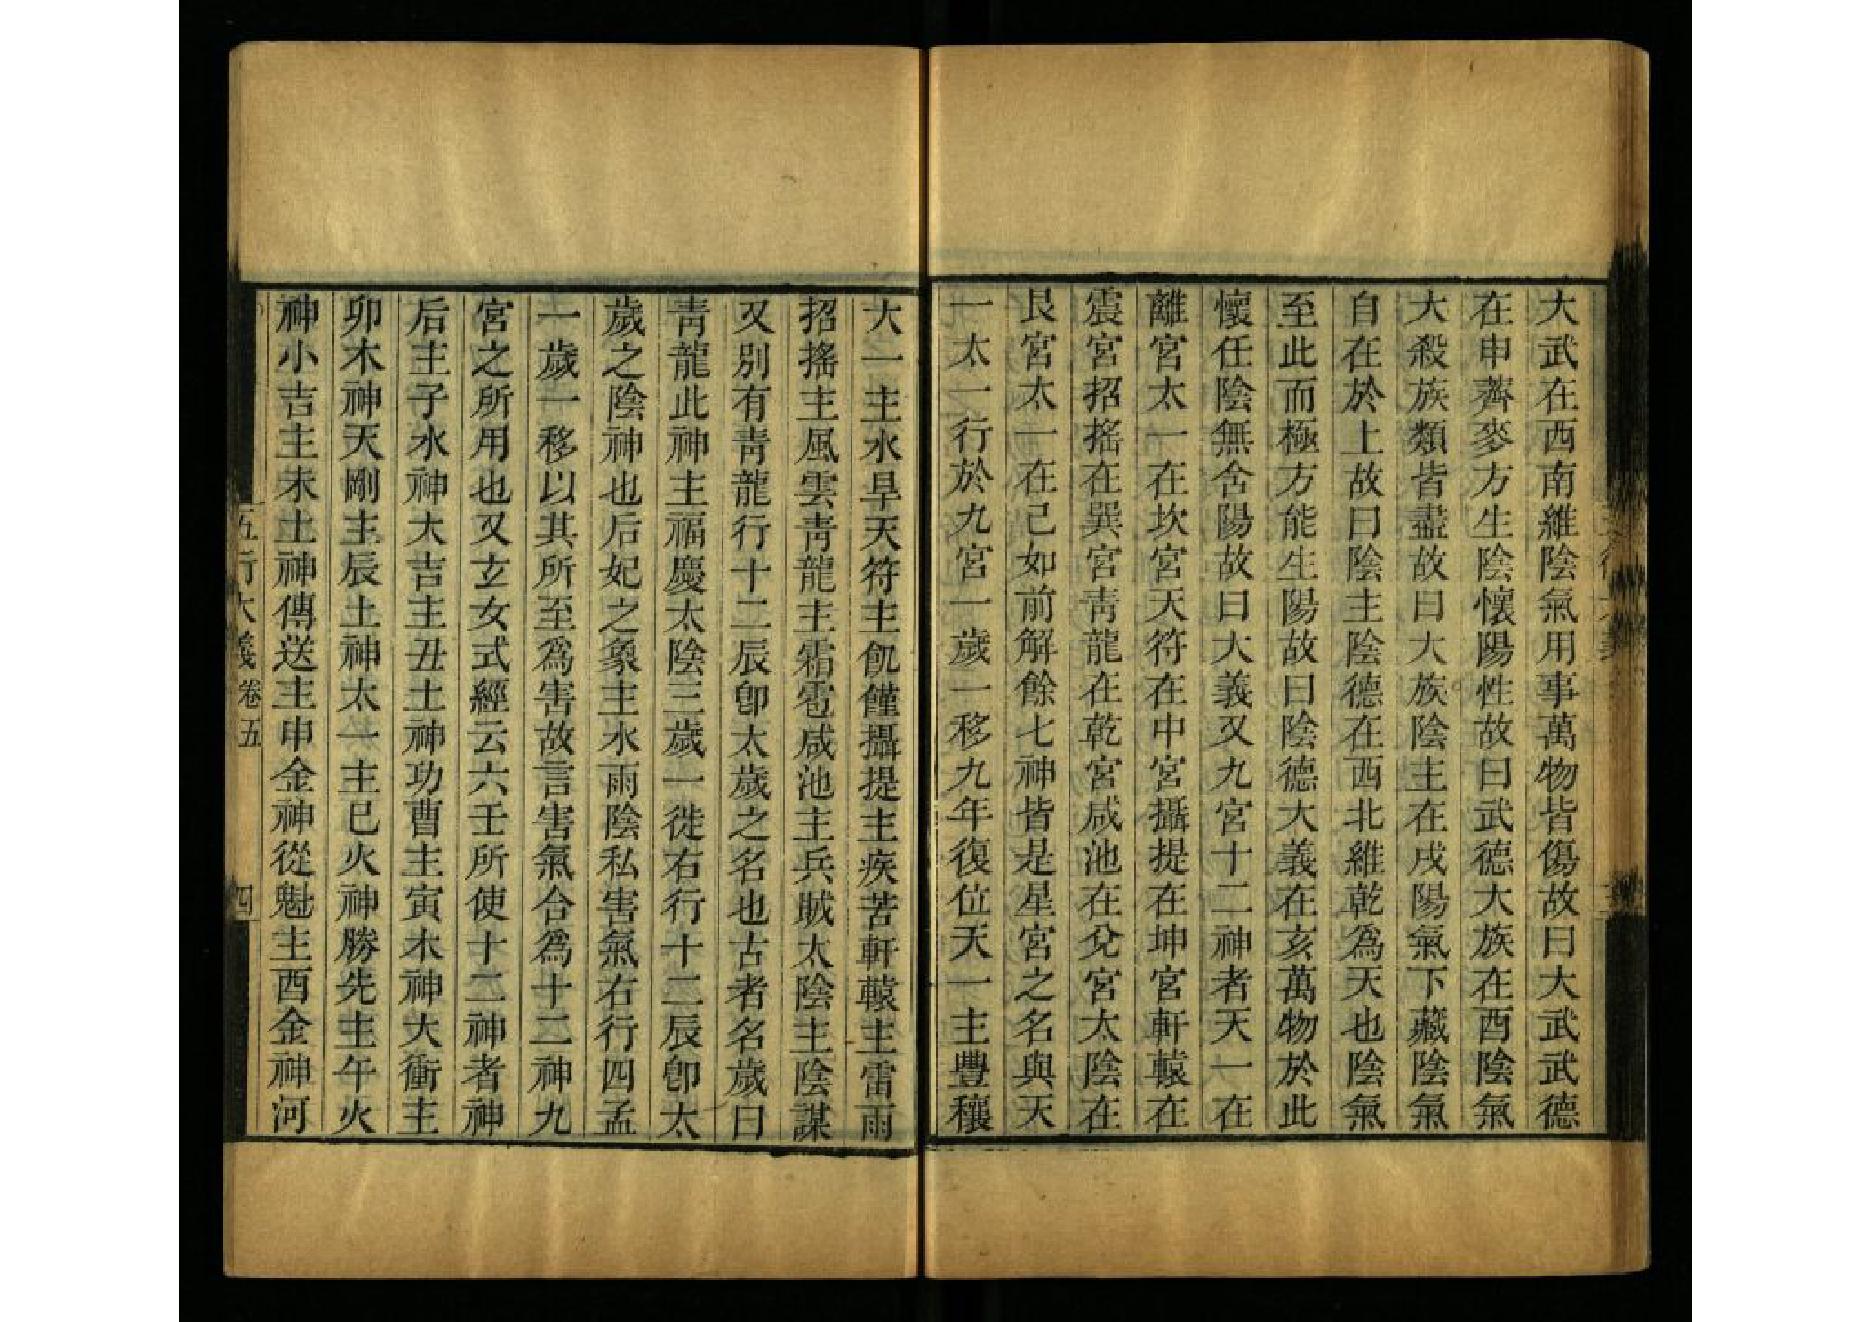 大武在西南維陰氣用事萬物皆傷故曰大武武德
在申薺麥方生陰懷陽性故曰武德大族在酉陰氣
大殺族類皆盡故曰大族陰主在戌陽氣下藏陰氣
自在於上故曰陰主陰德在西北維乾爲天也陰氣
至此而極方能生陽故曰陰德大義在亥萬物於此
懷任陰無舍陽故曰大義又九宮十二神者天一在
離宮太一在坎宮天符在中宮攝提在坤宮軒轅在
震宮招搖在巽宮青龍在乾宮咸池在兌宮太陰在
艮宮太一在己如前解餘七神皆是星宮之名與天
一太一行於九宮一歲一移九年復位天一主豐穰
大一主水旱天符主飢饉攝提主疾苦軒轅主雷雨
招搖主風雲青龍主霜雹咸池主兵賊太陰主陰謀
又別有青龍行十二辰卽太歲之名也古者名歲曰
青龍此神主福慶太陰三歲一徙右行十二辰卽太
歲之陰神也后妃之象主水雨陰私害氣右行四孟
一歲一移以其所至爲害故言害氣合爲十二神九
宮之所用也又玄女式經云六壬所使十二神者神
后主子水神大吉主丑土神功曹主寅木神大衝主
卯木神天剛主辰土神太一主巳火神勝先主午火
神小吉主未土神傳送主申金神從魁主酉金神河
五行大義 卷五 四